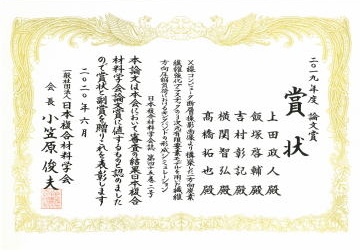 二〇一九年度 論文賞
賞状
上田政人殿
飯塚啓輔殿
吉村彰記殿
横関智弘殿
高橋拓也殿
X線コンピュータ断層撮影画像より構築した一方向炭素
繊維強化プラスチックの三次元有限要素モデルを用いた繊維
方向圧縮負荷におけるキンクバンドの形成シミュレーション
日本複合材料学会誌 第四十五巻二号
本論文は本会において審査の結果日本複合
材料学会論文賞に値するものと認めました
のて賞状と副賞を贈りこれを表彰します
二〇二〇年六月
一般社団法人日本複合材料学会
会長 小笠原俊夫